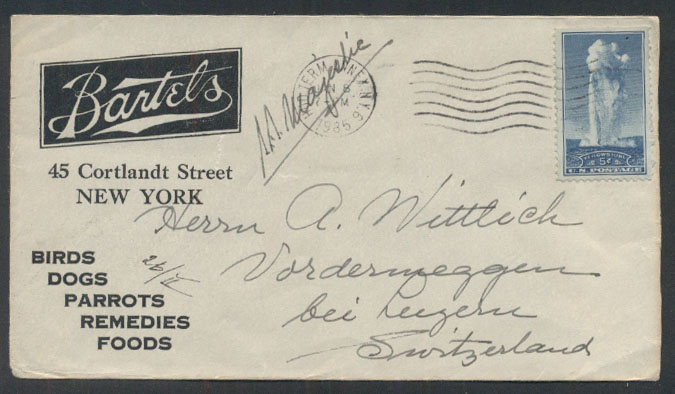 Bartels
45 Cortlandt Street
NEW YORK
BIRDS
DOGS
PARROTS
REMEDIES
FOODS
S.S. Majestic
1935
YELLOWSTONE
5¢
U.S. POSTAGE
Herrn A. Wittlich
Vordermeggen
bei Luzern
Switzerland